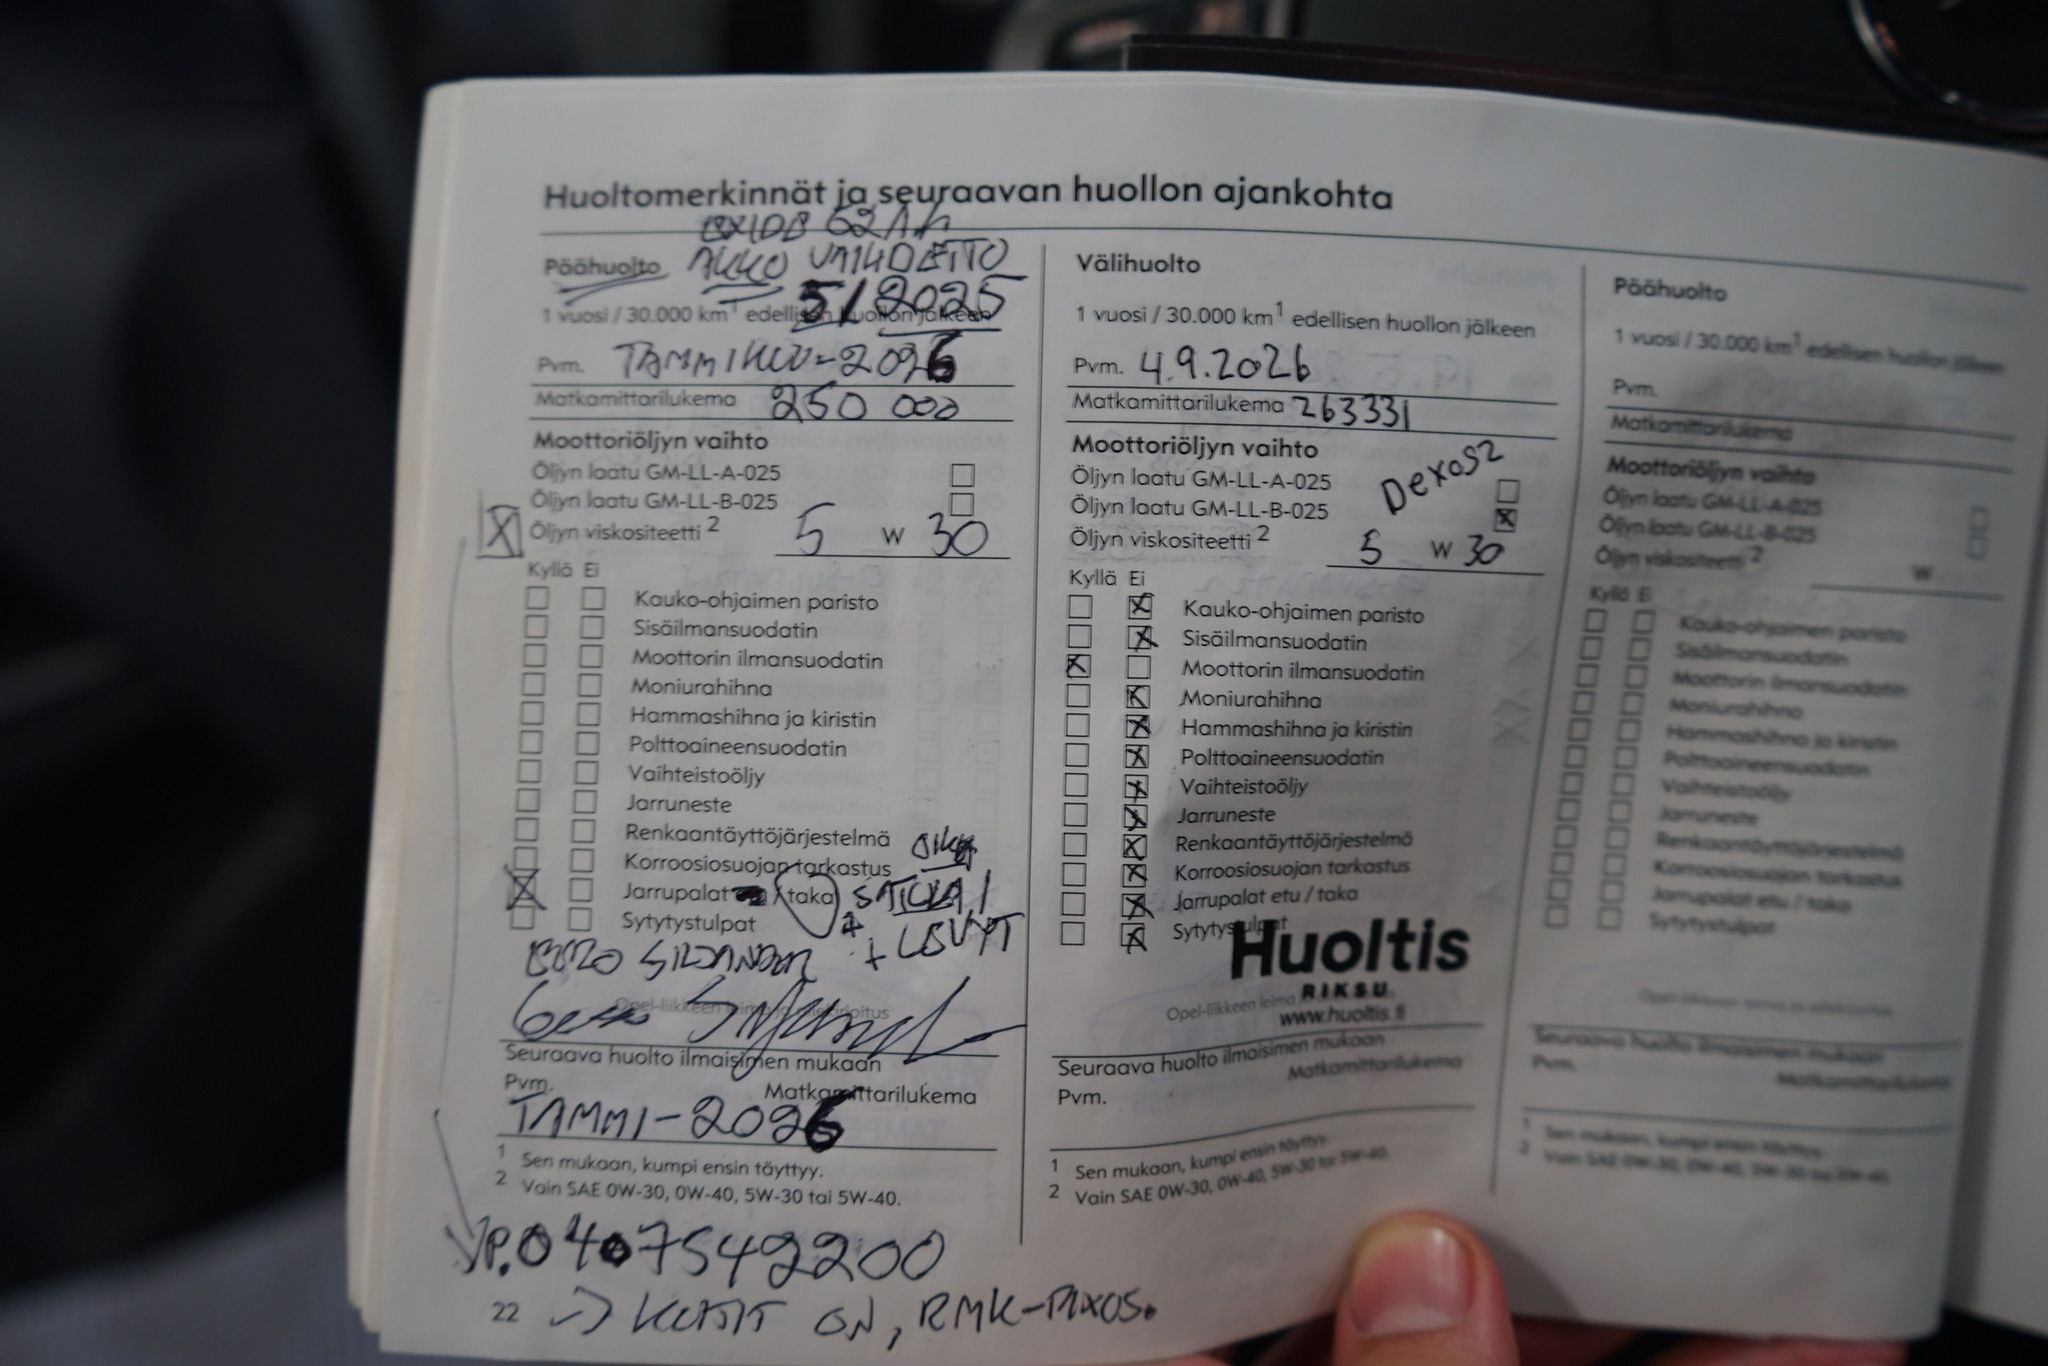 Huoltomerkinnät ja seuraavan huollon ajankohta
62Ah
Päähuolto AKKO VAIHDETTO
5/2025
1 vuosi / 30.000 km1 edellisen huollon jälkeen
Pvm. TAMMIKUU-2026
Matkamittarilukema 250 000
Moottoriöljyn vaihto
Öljyn laatu GM-LL-A-025
Öljyn laatu GM-LL-B-025
X Öljyn viskositeetti 2 5 W 30
Kyllä Ei
Kauko-ohjaimen paristo
Sisäilmansuodatin
Moottorin ilmansuodatin
Moniurahihna
Hammashihna ja kiristin
Polttoaineensuodatin
Vaihteistoöljy
Jarruneste
Renkaantäyttöjärjestelmä
Korroosiosuojan tarkastus
X Jarrupalat / taka
Sytytystulpat
+ LEVYT
Opel-liikkeen leima ja allekirjoitus
Seuraava huolto ilmaisimen mukaan
Pvm. Matkamittarilukema
TAMMI-2026
1 Sen mukaan, kumpi ensin täyttyy.
2 Vain SAE 0W-30, 0W-40, 5W-30 tai 5W-40.
P.0407549200
22 -> KUITIT ON, RMK-
Välihuolto
1 vuosi / 30.000 km1 edellisen huollon jälkeen
Pvm. 4.9.2026
Matkamittarilukema 263331
Moottoriöljyn vaihto
Dexos2
Öljyn laatu GM-LL-A-025
Öljyn laatu GM-LL-B-025 X
Öljyn viskositeetti 2 5 W 30
Kyllä Ei
X Kauko-ohjaimen paristo
X Sisäilmansuodatin
X Moottorin ilmansuodatin
X Moniurahihna
X Hammashihna ja kiristin
X Polttoaineensuodatin
X Vaihteistoöljy
X Jarruneste
X Renkaantäyttöjärjestelmä
X Korroosiosuojan tarkastus
X Jarrupalat etu / taka
X Sytytystulpat
Huoltis
RIKSU
Opel-liikkeen leima
www.huoltis.fi
Seuraava huolto ilmaisimen mukaan
Pvm. Matkamittarilukema
1 Sen mukaan, kumpi ensin täyttyy.
2 Vain SAE 0W-30, 0W-40, 5W-30 tai 5W-40.
Päähuolto
1 vuosi / 30.000 km1 edellisen huollon jälkeen
Pvm.
Matkamittarilukema
Moottoriöljyn vaihto
Öljyn laatu GM-LL-A-025
Öljyn laatu GM-LL-B-025
Öljyn viskositeetti 2 W
Kyllä Ei
Kauko-ohjaimen paristo
Sisäilmansuodatin
Moottorin ilmansuodatin
Moniurahihna
Hammashihna ja kiristin
Polttoaineensuodatin
Vaihteistoöljy
Jarruneste
Renkaantäyttöjärjestelmä
Korroosiosuojan tarkastus
Jarrupalat etu / taka
Sytytystulpat
Opel-liikkeen leima ja allekirjoitus
Seuraava huolto ilmaisimen mukaan
Pvm. Matkamittarilukema
1 Sen mukaan, kumpi ensin täyttyy.
2 Vain SAE 0W-30, 0W-40, 5W-30 tai 5W-40.